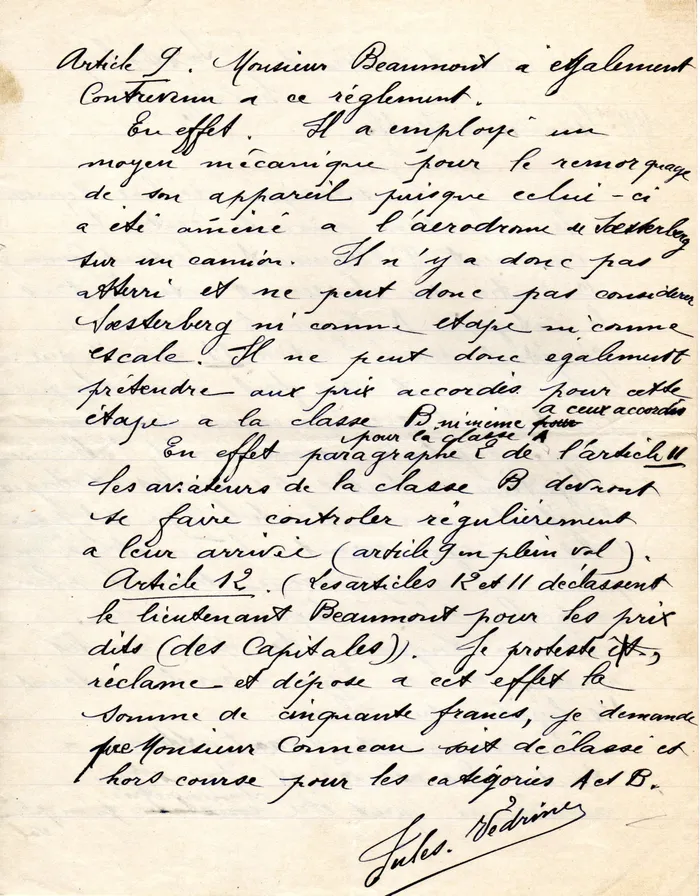 Article 9. Monsieur Beaumont a également
Contrevenu a ce réglement.
En effet. Il a employé un
moyen mécanique pour le remorquage
de son appareil puisque celui-ci
a été améné a l'aérodrome de Soesterberg
sur un camion. Il n'y a donc pas
atterri et ne peut donc pas considerer
Soesterberg ni comme etape ni comme
escale. Il ne peut donc également
prétendre aux prix accordés pour cette
étape a la classe B ni même pour a ceux accordés
pour la classe A
En effet paragraphe 2 de l'article 11
les aviateurs de la classe B devront
se faire controler régulièrement
a leur arrivée (article 9 en plein vol).
Article 12. (Les articles 12 et 11 déclassent
le lieutenant Beaumont pour les prix
dits (des Capitales)). Je proteste et,
réclame et dépose a cet effet la
somme de cinquante francs, je demande
que Monsieur Conneau soit déclassé et
hors course pour les catégories A et B.
Jules. Védrines